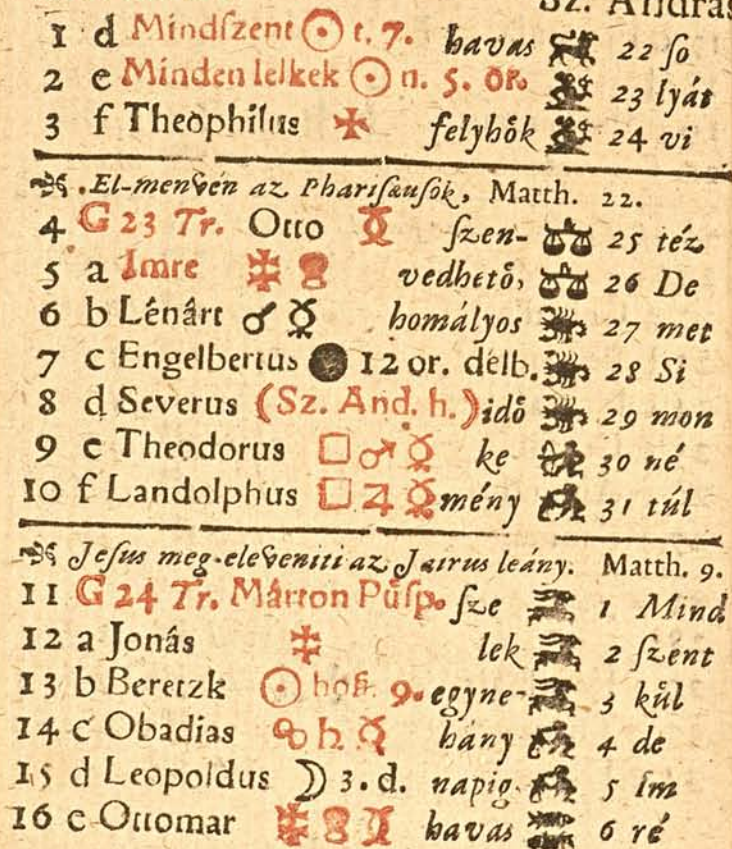 Sz. András
1 d Mindſzent ☉ t. 7. havas ♌ 22 ſo
2 e Minden lelkek ☉ n. 5. or. ♍ 23 lyát
3 f Theophilus ✠ felyhők ♍ 24 vi
El-menvén az Phariſæuſok, Matth. 22.
4 G 23 Tr. Otto ſzen- ♎ 25 téz
5 a Imre vedhető, ♎ 26 De
6 b Lénárt ♂ ☿ homályos ♏ 27 met
7 c Engelbertus ● 12 or. délb. ♏ 28 Si
8 d Severus (Sz. And. h.) idő ♏ 29 mon
9 e Theodorus □ ♂ ☿ ke ♐ 30 né
10 f Landolphus □ ♃ ☿ mény ♑ 31 túl
Jeſus meg-eleveniti az Jairus leány. Matth. 9.
11 G 24 Tr. Márton Püſp. ſze ♑ 1 Mind
12 a Jonás lek ♑ 2 ſzent
13 b Beretzk ☉ 9. egyne- ♑ 3 kül
14 c Obadias ☍ ♄ ☿ hány 4 de
15 d Leopoldus ☽ 3. d. napig 5 Im
16 e Ottomar havas 6 ré